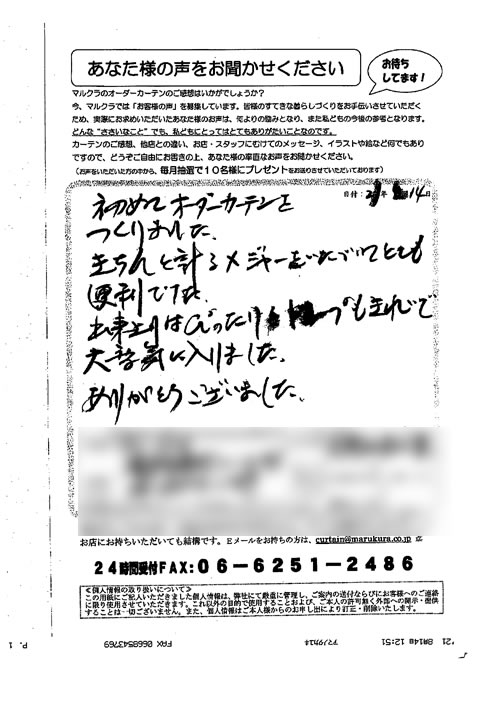 あなた様の声をお聞かせください
お待ち
してます!
マルクラのオーダーカーテンのご感想はいかがでしょうか?
今、マルクラでは「お客様の声」を募集しています。皆様のすてきな暮らしづくりをお手伝いさせていただく
ため、実際にお求めいただいたあなた様のお声は、何よりの励みとなり、また私どもの今後の参考となります。
どんな“ささいなこと”でも、私どもにとってはとてもありがたいことなのです。
カーテンのご感想、他店との違い、お店・スタッフにむけてのメッセージ、イラストや絵など何でもあり
ですので、どうぞご自由にお書きの上、あなた様の率直なお声をお聞かせください。
(お声をいただいた方の中から、毎月抽選で10名様にプレゼントをお送りさせていただいております)
日付:21年 8月14日
初めてオーダーカーテンを
つくりました。
きちんと計るメジャーをいただいてとても
便利でした。
出来上りはぴったり プもきれいで
大変気に入りました。
ありがとうございました。
お店にお持ちいただいても結構です。Eメールをお持ちの方は、curtain@marukura.co.jp
24時間受付FAX:06-6251-2486
≪個人情報の取り扱いについて≫
この用紙にご記入いただきました個人情報は、弊社にて厳重に管理し、ご案内の送付ならびにお客様へのご連絡
に限り使用させていただきます。これ以外の目的で使用することおよび、ご本人の許可無く外部への開示・提供
することは一切ございません。また、個人情報はご本人様からのお申し出により訂正・削除いたします。
'21 8月14日 12:51
FAX 0668543769
P. 1